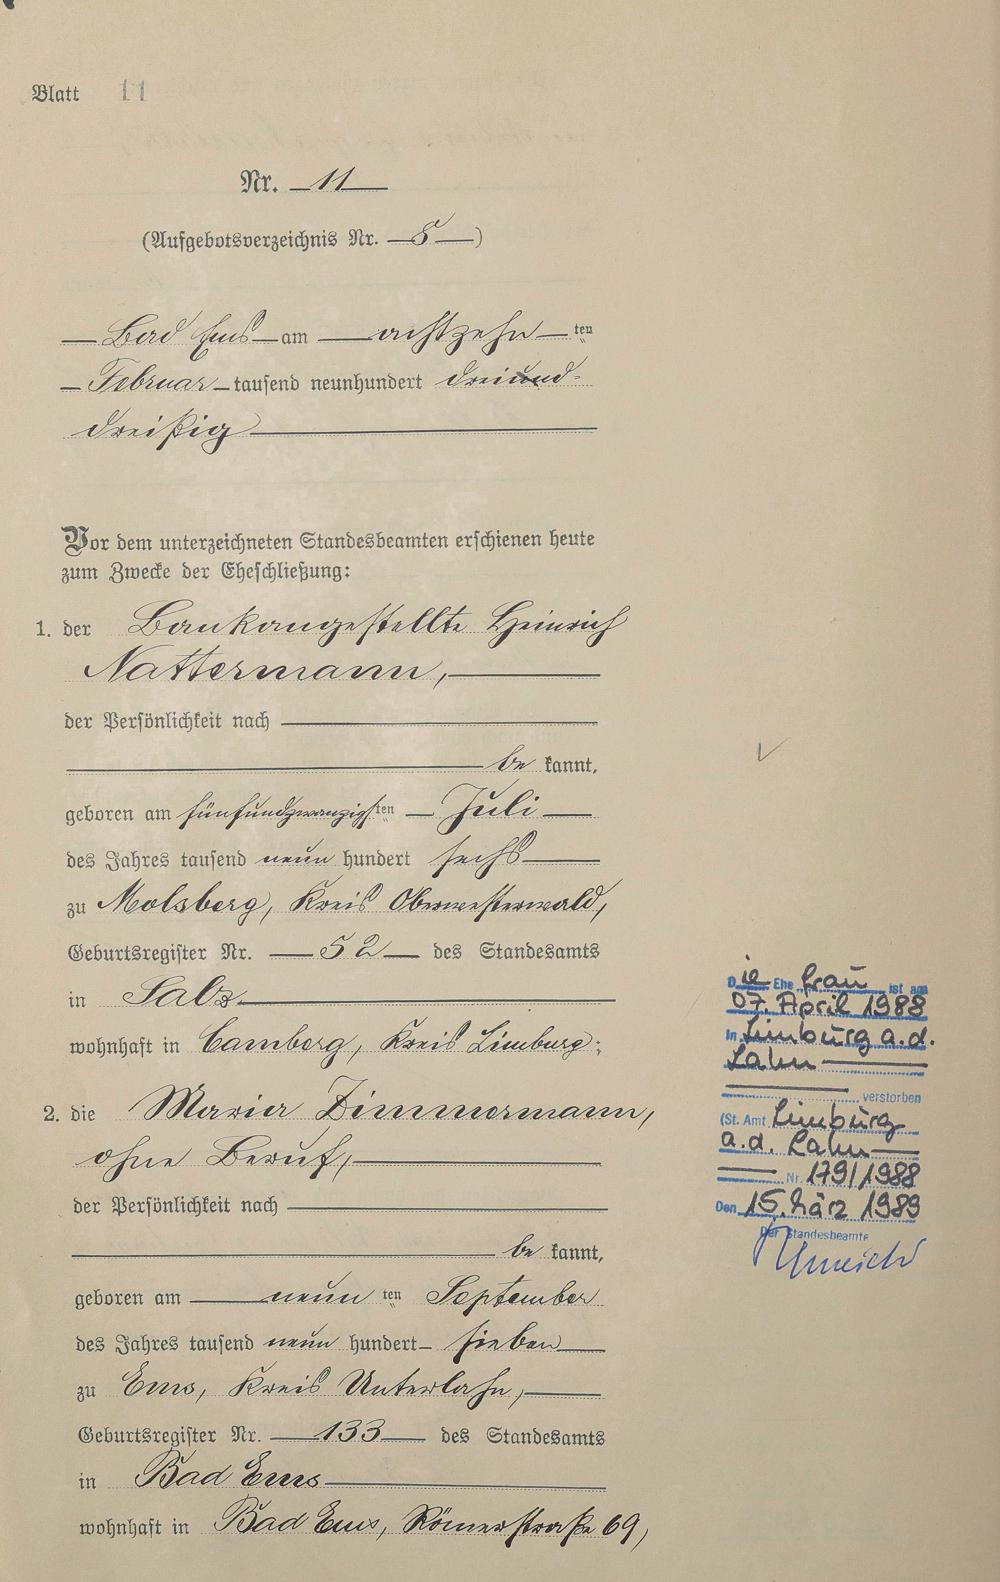 Blatt 11
Nr. 11
(Aufgebotsverzeichnis Nr. 5)
Bad Ems am achtzehn ten
Februar tausend neunhundert dreiund-
dreißig
Vor dem unterzeichneten Standesbeamten erschienen heute
zum Zwecke der Eheschließung:
1. der Bankangestellte Heinrich
Nattermann,
der Persönlichkeit nach
be kannt,
geboren am fünfundzwanzigsten Juli
des Jahres tausend neun hundert sechs
zu Molsberg, Kreis Oberwesterwald,
Geburtsregister Nr. 52 des Standesamts
in Salz
wohnhaft in Camberg, Kreis Limburg;
2. die Maria Zimmermann,
ohne Beruf,
der Persönlichkeit nach
be kannt,
geboren am neun ten September
des Jahres tausend neun hundert sieben
zu Ems, Kreis Unterlahn,
Geburtsregister Nr. 133 des Standesamts
in Bad Ems
wohnhaft in Bad Ems, Römerstraße 69,
Die Ehe frau ist am
07. April 1988
in Limburg a.d.
Lahn
verstorben
(St. Amt Limburg
a.d. Lahn
Nr. 179/1988
Den 15. März 1989
Der Standesbeamte